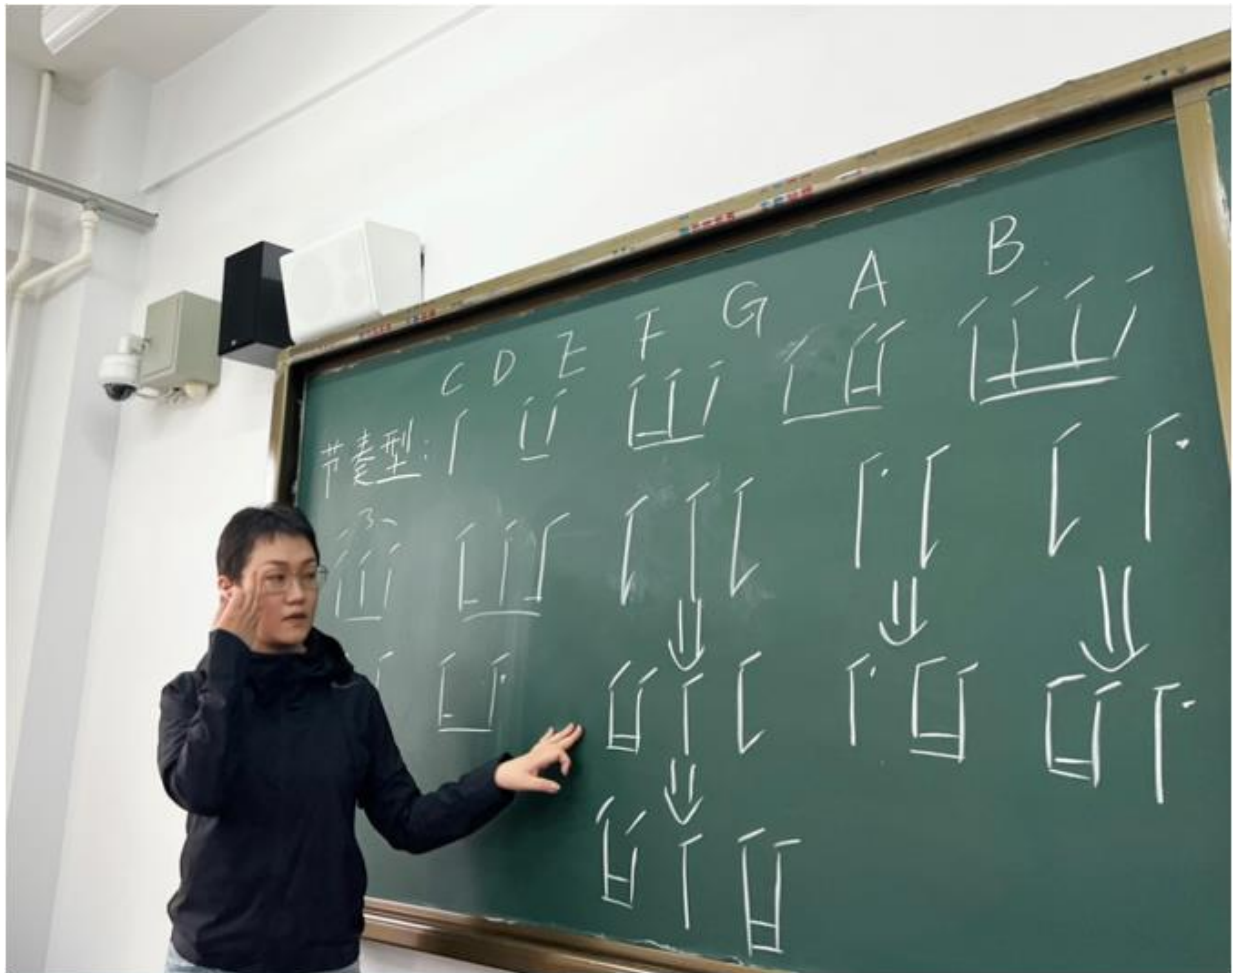 C D E F G A B
节奏型:
3